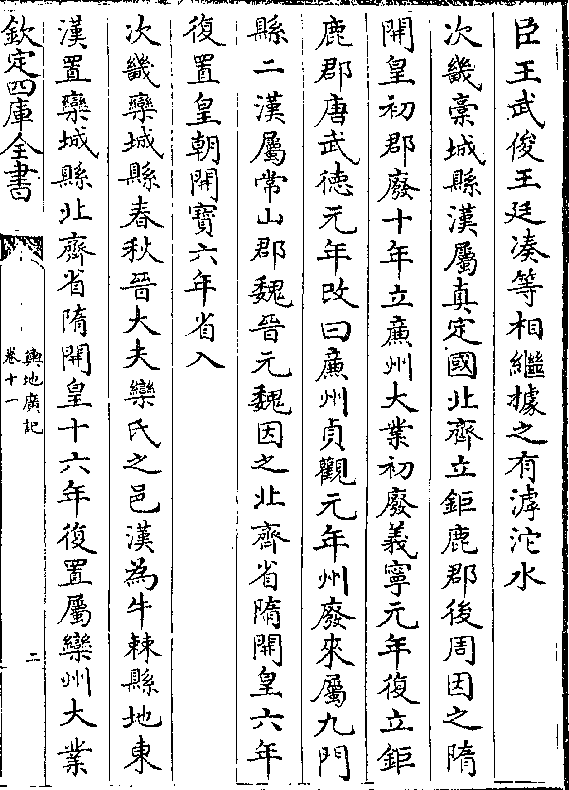 臣王武俊王廷凑等相繼據之有滹沱水
次畿藁城縣漢屬真定國北齊立鉅鹿郡後周因之隋
開皇初郡廢十年立廉州大業初廢義寧元年復立鉅
鹿郡唐武德元年改曰廉州貞觀元年州廢來屬九門
縣二漢屬常山郡魏晉元魏因之北齊省隋開皇六年
復置皇朝開寶六年省入
次畿欒城縣春秋晉大夫欒氏之邑漢為牛棘縣地東
漢置欒城縣北齊省隋開皇十六年復置屬欒州大業
欽定四庫全書
輿地廣記
卷十一
二